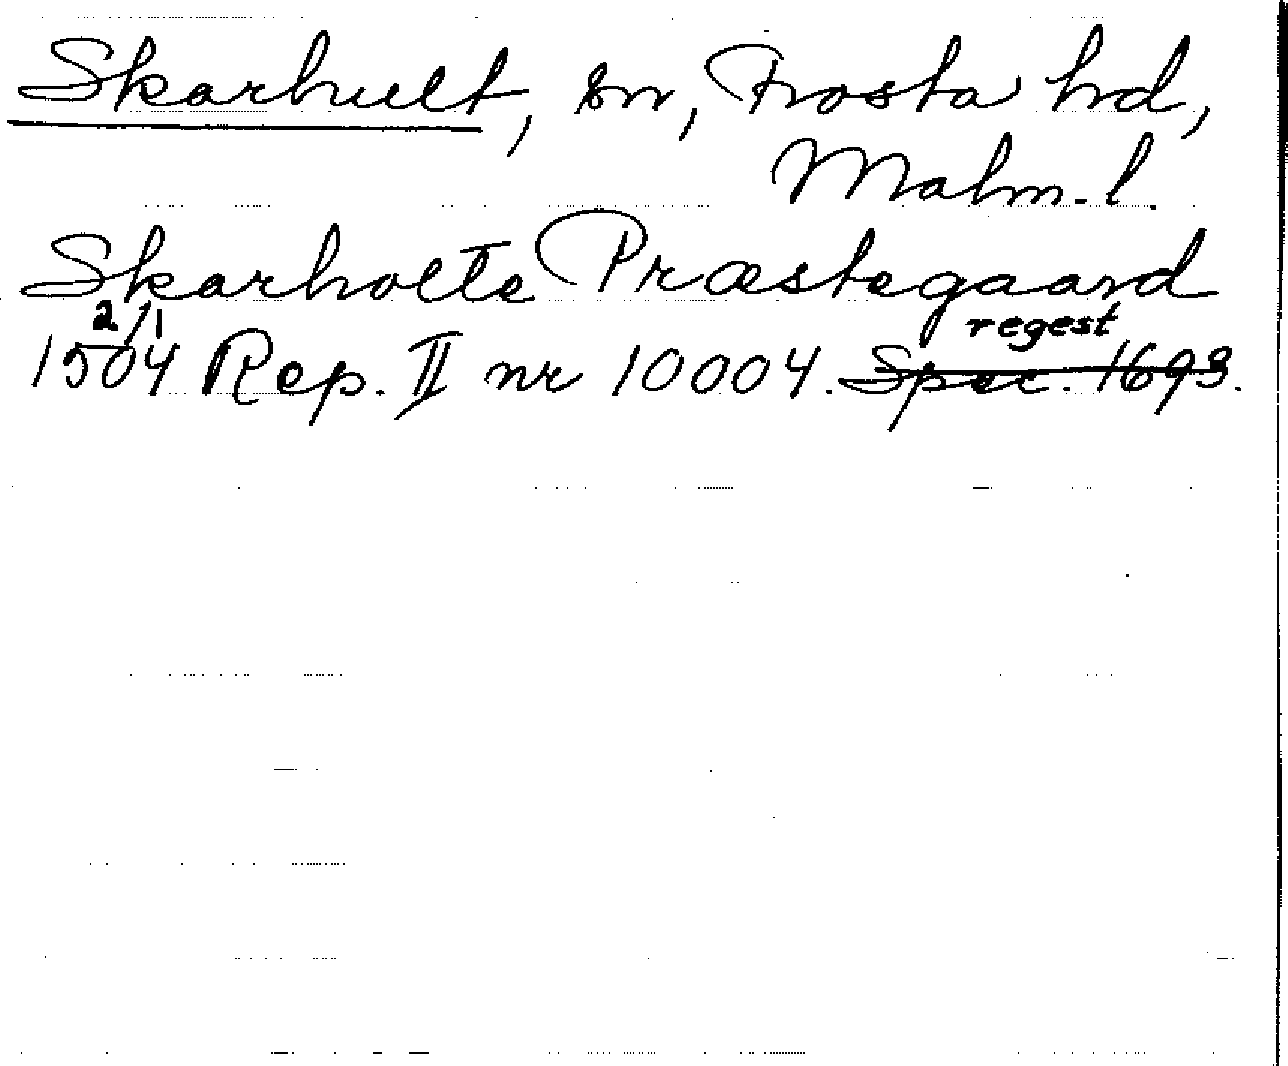 Skarhult, sn, Frosta hd,
Malm. l.
Skarholte Præstegaard
2/1 regest
1504 Rep. II nr 10004. Spec. 1693.